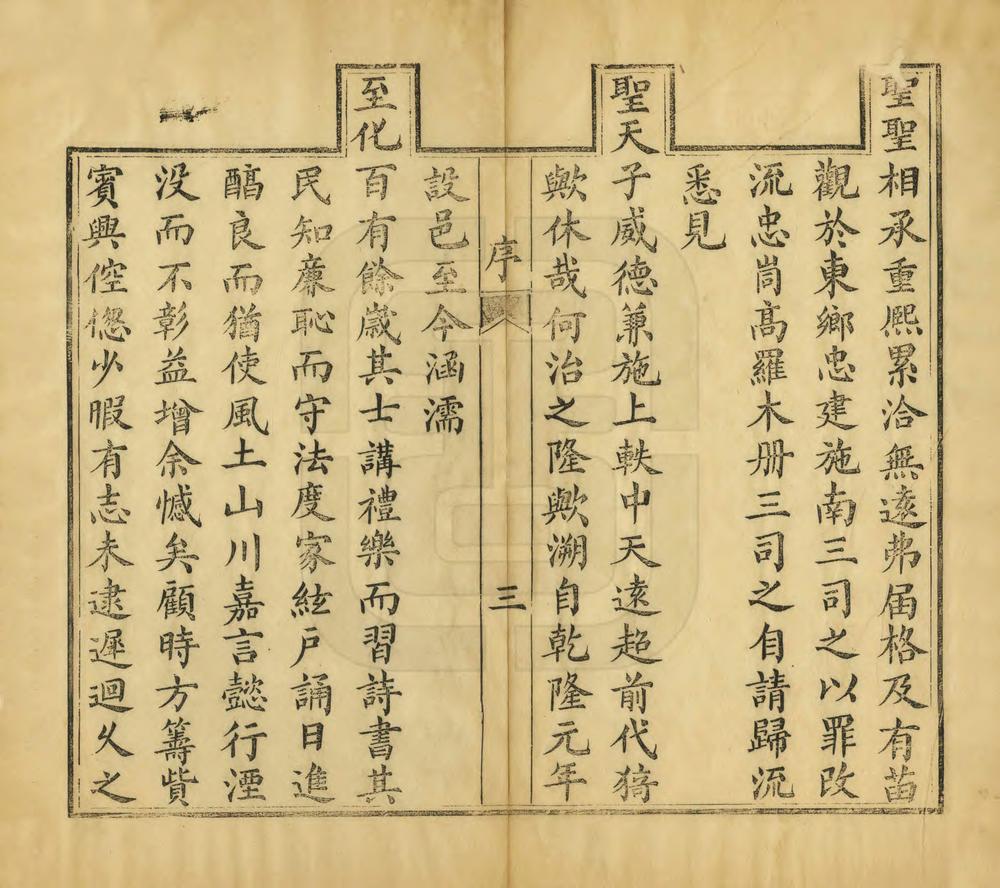 聖聖相承重熙累洽無遠弗届格及有苗
觀於東鄉忠建施南三司之以罪改
流忠峝高羅木册三司之自請歸流
悉見
聖天子威德兼施上軼中天遠超前代猗
歟休哉何治之隆歟溯自乾隆元年
序
三
設邑至今涵濡
至化百有餘歲其士講禮樂而習詩書其
民知廉恥而守法度家絃戶誦日進
醕良而猶使風土山川嘉言懿行湮
没而不彰益增余憾矣顧時方籌貲
賓興倥偬少暇有志未逮遲迴久之